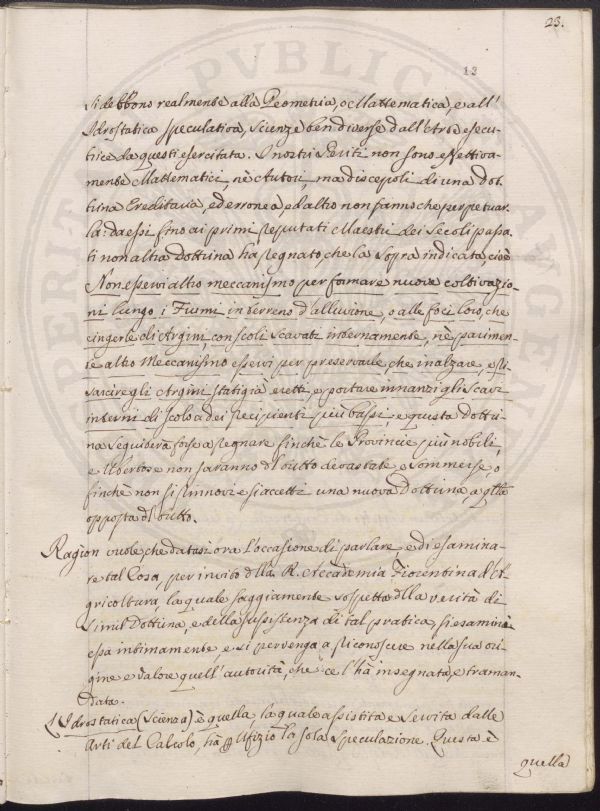 23.
13
si debbono realmente alla Geometria, o Mattematica, e all'
Idrostatica speculativa, Scienze ben diverse dall'Arte esecu-
trice da questi esercitata. I nostri Periti non sono effettiva-
mente Mattematici, nè Autori, ma discepoli di una Dot-
trina Ereditaria, ed erronea, ed altro non fanno che perpetuar-
la: da essi fino ai primi reputati Maestri dei Secoli passa-
ti non altra Dottrina ha regnato, che la sopra indicata, cioè
Non esservi altro meccanismo per formare nuove coltivazio-
ni lungo i Fiumi in terreno d'alluvione, o alle foci loro, che
cingerle di Argini con scoli scavati internamente, nè parimen-
te altro Meccanismo esservi per preservarle, che inalzare, e ri-
sarcire gli Argini stati già eretti, e portare innanzi gli scavi
interni di scolo a dei recipienti più bassi, e questa Dottri-
na seguiterà forse a regnare finchè le Provincie più nobili,
e Ubertose non saranno dl tutto devastate, e Sommerse, o
finchè non si rinnovi, e si accetti una nuova Dottrina, a qlla
opposta dl tutto.
Ragion vuole che datasi ora l'occasione di parlare, e di esamina-
re tal Cosa, per invito dlla R. Accademia Fiorentina d'A-
gricoltura, la quale saggiamente sospetta dlla verità di
simil Dottrina, e della sussistenza di tal pratica, si esamini
essa intimamente, e si pervenga a riconoscere nella sua ori-
gine e valore quell'autorità, che ce l'hà insegnata, e traman-
data.
L'Idrostatica (Scienza) è quella la quale assistita e servita dalle
Arti del Calcolo, hà p Ufizio la sola speculazione. Questa è
quella
PVBLIC
VERITAS
AVGEN